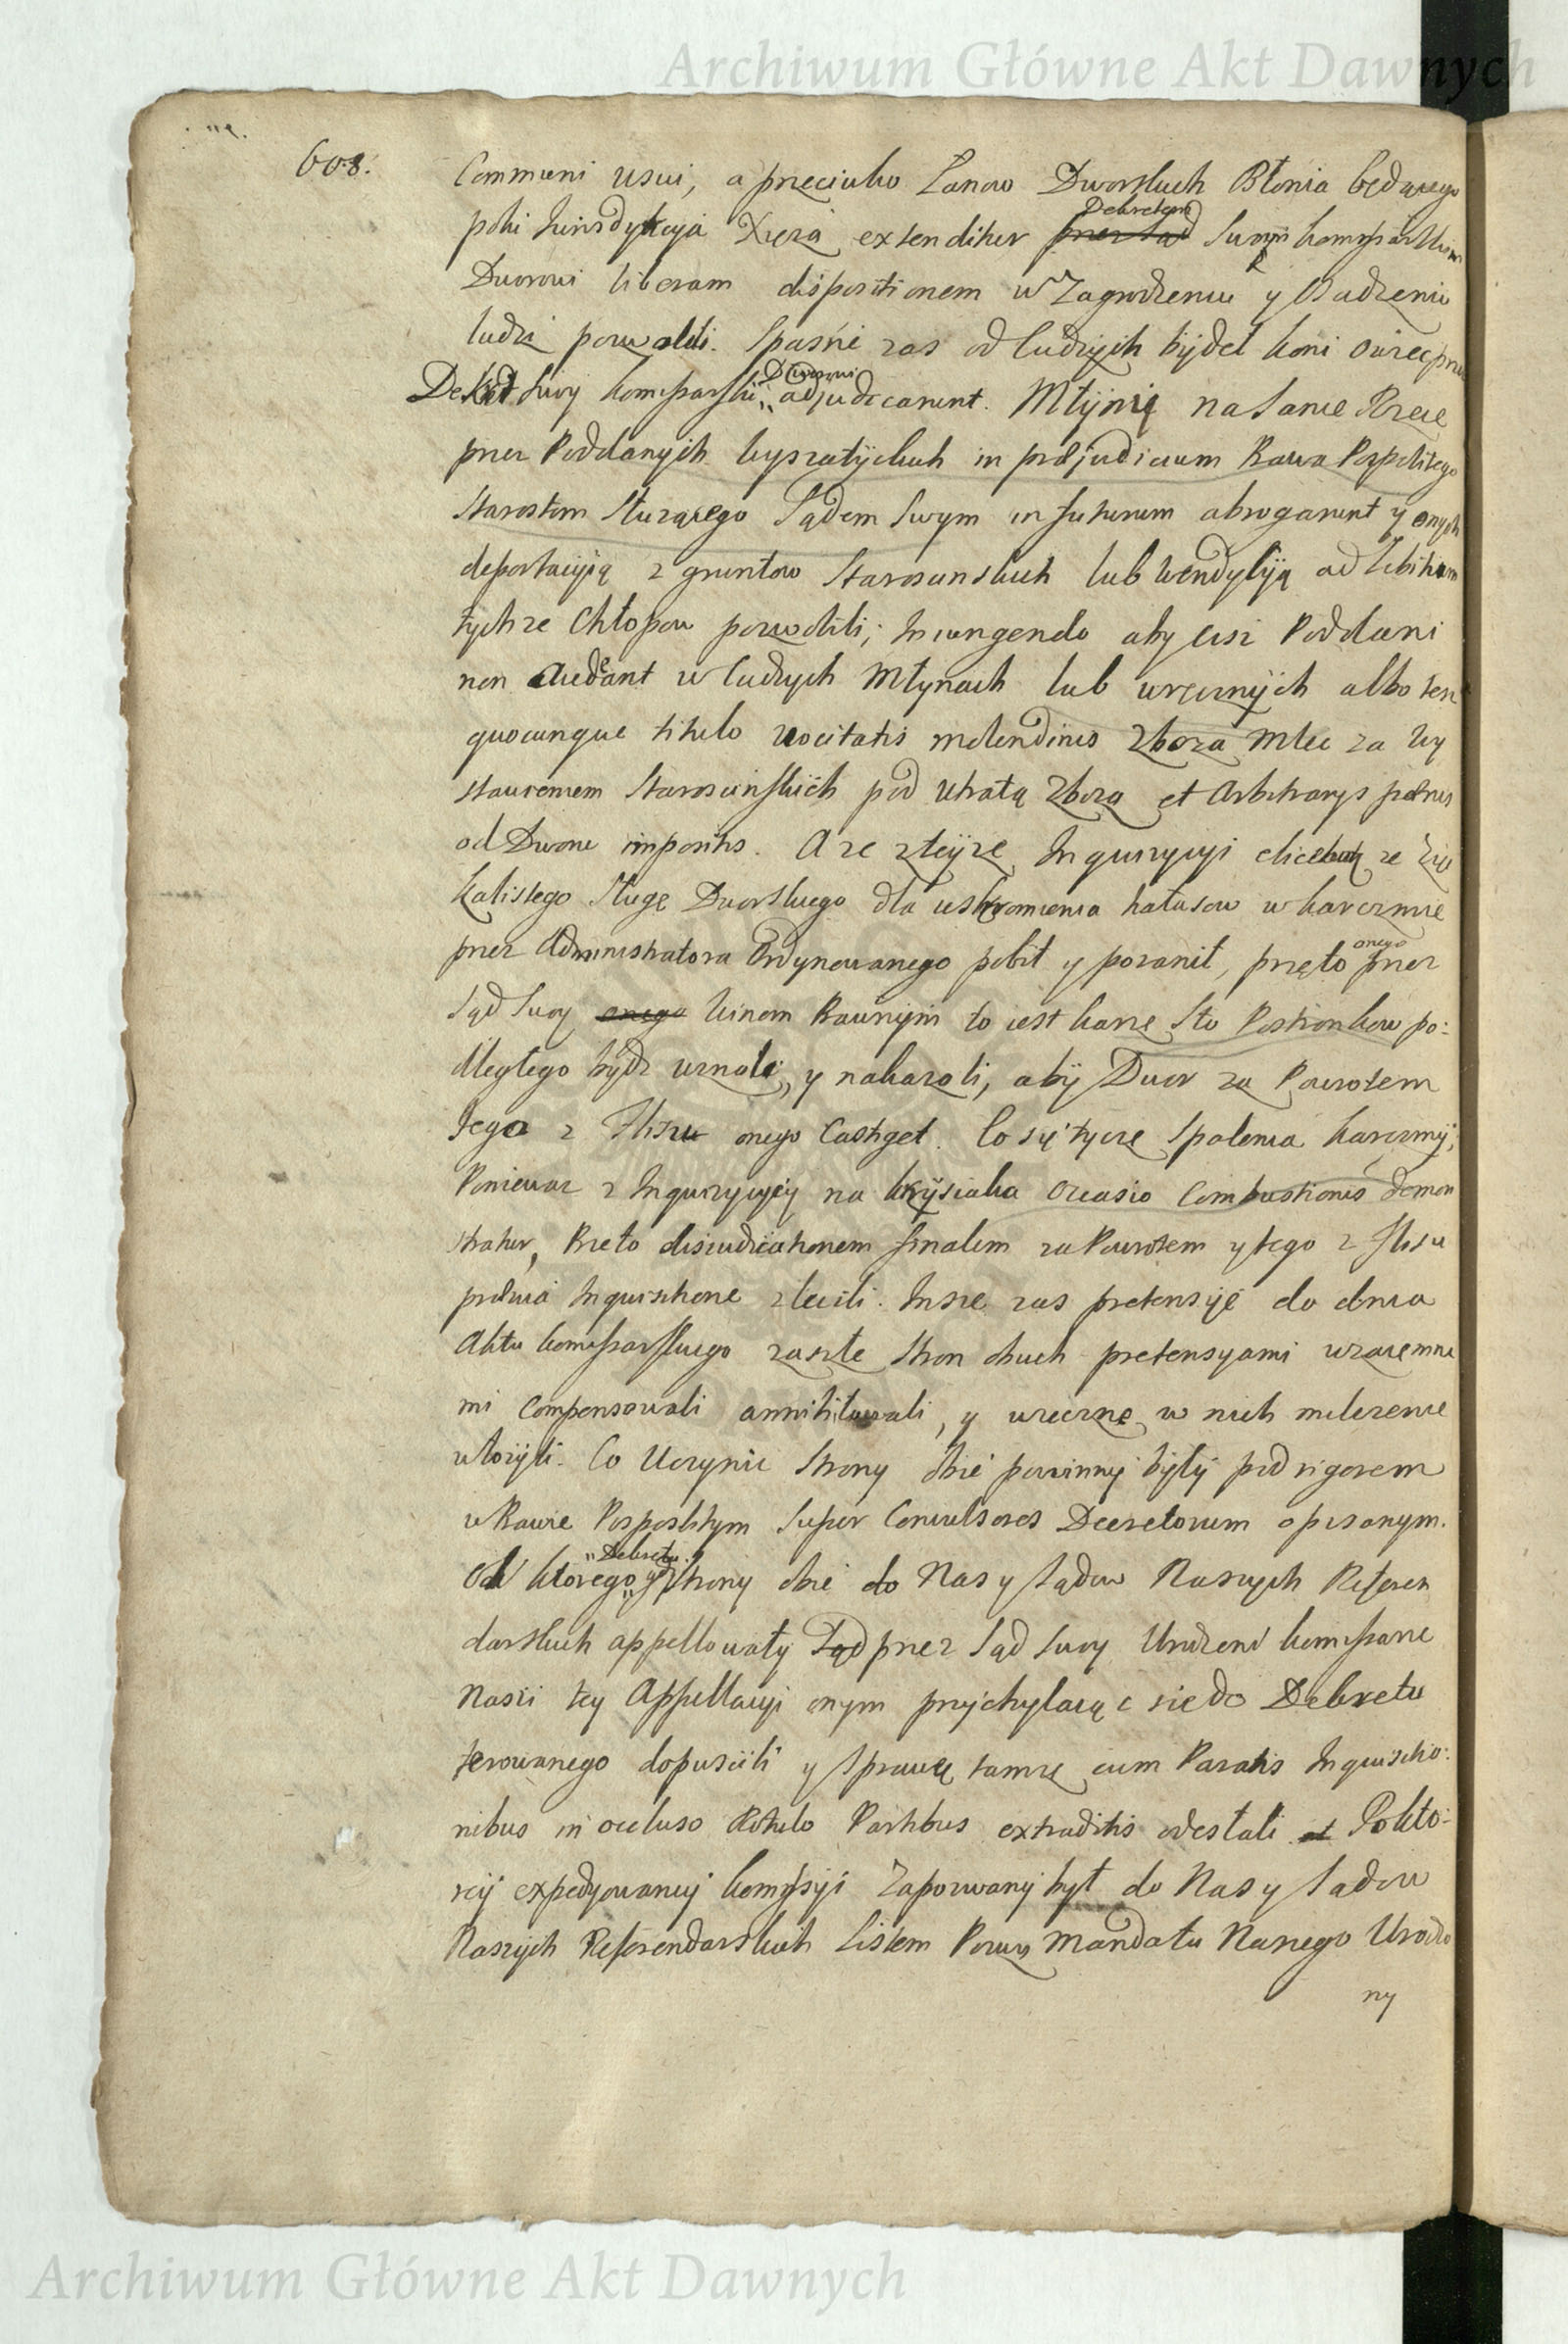 Archiwum Główne Akt Dawnych
608.
Communi usui, a przeciwko Łanow Dworskich Błonia będącego
poki Jurisdykcyia Xięza extenditur przez Sąd Dekretem Swym Komyssarskim
Dworowi liberam dispositionem w Zagrodzeniu y Osadzeniu
ludzi pozwolili. Spaśne zas od ludzkich bydeł koni owiec prze
Dekret Swoy Komissarski Dworowi adjudicarunt. Młynią na Sanie Rzece
przez Poddanych Krzeszat in præjudicium Prawa Pospolitego
Starostom Służącego Sądem Swym in futurum abrogarunt y onych
deportacyią z gruntow Staroscinskich lub wendycyią ad libitum
tychze Chłopow pozwolili; Iniungendo aby cisi Poddani
non audeant w cudzych Młynach lub wręcznych albo tesz
quocunque titulo vocitatis molendinis Zboza mlec za wy
stawieniem Staroscinskich pod utratą Zboza et Arbitrarys pœnis
od Dworu impositis. A ze zteyze Inquizycyi elicetur ze
Kalistego Sługę Dworskiego dla uskromienia hałasow w karczmie
przez Administratora Ordynowanego pobił y poranił, przęto onego przez
Sąd Swoy onego winom Prawnym to iest karze Sto Postronkow po:
dległego bydz uznali, y nakazali, aby Dwor za Powrotem
Jego z Flisu onego Castiget. Co się tycze Spalenia karczmy,
Poniewaz z Inquizycyey na Krysiaka occasio Combustionis demon
stratur, Przeto disiudicationem finalem za Powrotem y tego z flisu
prævia Inquisitione zlecili. Insze zas pretensye do dnia
Aktu Komissarskiego zaszłe Stron obuch pretensyami wzaiemne
mi compensowali annihilowali, y wieczne w nich milczenie
włozyli. Co Uczynić Strony obie powinny były pod rigorem
w Prawie Pospolitym Super Convulsores Decretorum opisanym.
Od ktorego Dekretu gdy Strony obie do Nas y Sądow Naszych Referen
darskich appellowały Sąd przez Sąd Swoy Urodzeni Komissarze
Nasi tey Appellacyi onym przychylaiąc sie do Dekretu
ferowanego dopuscili y Sprawę tamze cum Paratis Inquisitio:
nibus in occluso Rotulo Partibus extraditis odesłali et Po kto:
rey expedyowaney Komyssyi Zapozwany był do Nas y Sądow
Naszych Referendarskich Listem Pozwu Mandatu Naszego Urodzo
ny
Archiwum Główne Akt Dawnych